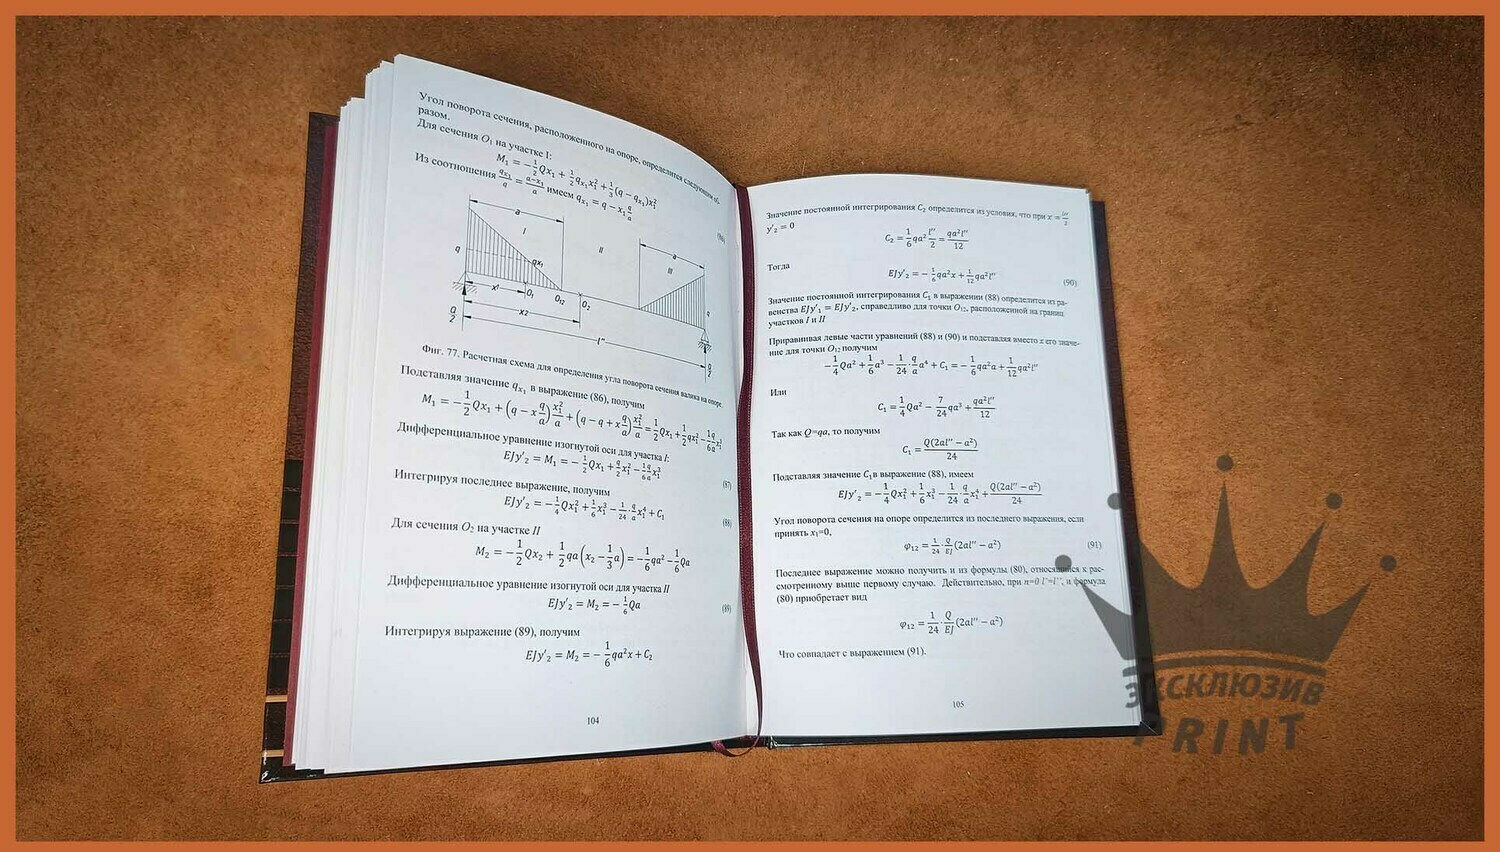 Угол поворота сечения, расположенного на опоре, определится следующим об-
разом.
Для сечения O₁ на участке I:
M₁ = −1/2 Qx₁ + 1/2 qₓ₁x₁² + 1/3 (q − qₓ₁)x₁²
(86)
Из соотношения qₓ₁/q = (a−x₁)/a имеем qₓ₁ = q − x₁ q/a
a
I
II
a
III
q
qx₁
q
x¹
O₁
O₁₂
O₂
Q/2
x₂
l'''
Q/2
Фиг. 77. Расчетная схема для определения угла поворота сечения валика на опоре.
Подставляя значение qₓ₁ в выражение (86), получим
M₁ = −1/2 Qx₁ + (q − x q/a) x₁²/a + (q − q + x q/a) x₁²/a = 1/2 Qx₁ + 1/2 qx₁² − 1/6 q/a x₁³
Дифференциальное уравнение изогнутой оси для участка I:
EJy'₂ = M₁ = −1/2 Qx₁ + q/2 x₁² − 1/6 q/a x₁³
(87)
Интегрируя последнее выражение, получим
EJy'₂ = −1/4 Qx₁² + 1/6 x₁³ − 1/24 · q/a x₁⁴ + C₁
(88)
Для сечения O₂ на участке II
M₂ = −1/2 Qx₂ + 1/2 qa (x₂ − 1/3 a) = −1/6 qa² − 1/6 Qa
Дифференциальное уравнение изогнутой оси для участка II
EJy'₂ = M₂ = −1/6 Qa
(89)
Интегрируя выражение (89), получим
EJy'₂ = M₂ = −1/6 qa²x + C₂
104
Значение постоянной интегрирования C₂ определится из условия, что при x =
y'₂ = 0
C₂ = 1/6 qa² l''/2 = qa²l''/12
Тогда
EJy'₂ = −1/6 qa²x + 1/12 qa²l''
(90)
Значение постоянной интегрирования C₁ в выражении (88) определится из ра-
венства EJy'₁ = EJy'₂, справедливо для точки O₁₂, расположенной на границ
участков I и II
Приравнивая левые части уравнений (88) и (90) и подставляя вместо x его значе-
ние для точки O₁₂ получим
−1/4 Qa² + 1/6 a³ − 1/24 · q/a a⁴ + C₁ = −1/6 qa²a + 1/12 qa²l''
Или
C₁ = 1/4 Qa² − 7/24 qa³ + qa²l''/12
Так как Q=qa, то получим
C₁ = Q(2al'' − a²)/24
Подставляя значение C₁ в выражение (88), имеем
EJy'₂ = −1/4 Qx₁² + 1/6 x₁³ − 1/24 · q/a x₁⁴ + Q(2al'' − a²)/24
Угол поворота сечения на опоре определится из последнего выражения, если
принять x₁=0,
φ₁₂ = 1/24 · Q/EJ (2al'' − a²)
(91)
Последнее выражение можно получить и из формулы (80), относящийся к рас-
смотренному выше первому случаю. Действительно, при n=0 l'=l'', и формула
(80) приобретает вид
φ₁₂ = 1/24 · Q/EJ (2al'' − a²)
Что совпадает с выражением (91).
105
ЭКСКЛЮЗИВ
PRINT